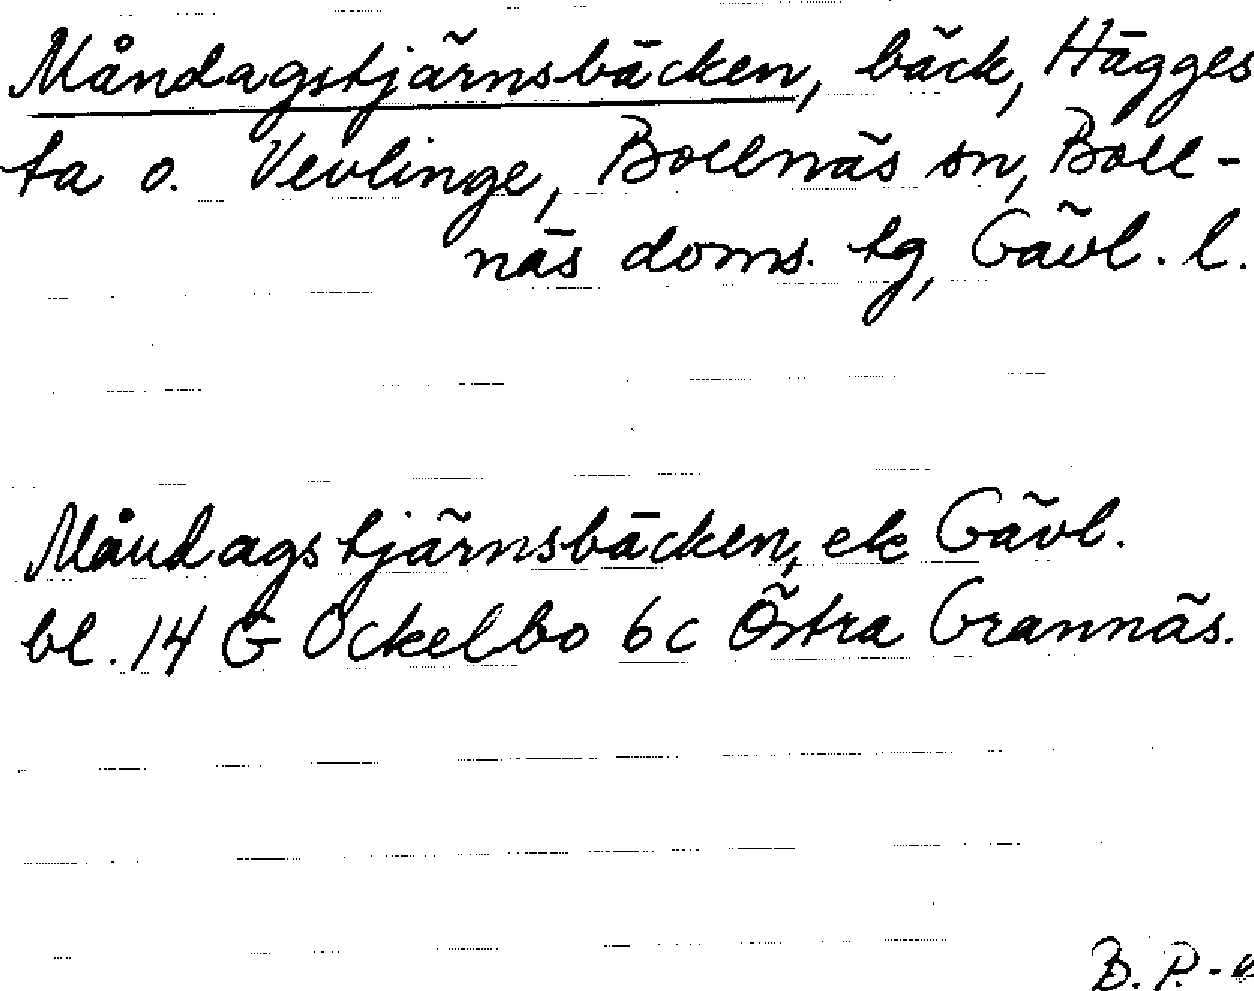 Måndagstjärnsbäcken, bäck, Hägges
ta o. Vevlinge, Bollnäs sn, Boll-
näs doms. tg, Gävl. l.
Måndagstjärnsbäcken, ek Gävl.
bl. 14 G Ockelbo 6c Östra Grannäs.
B. P.-